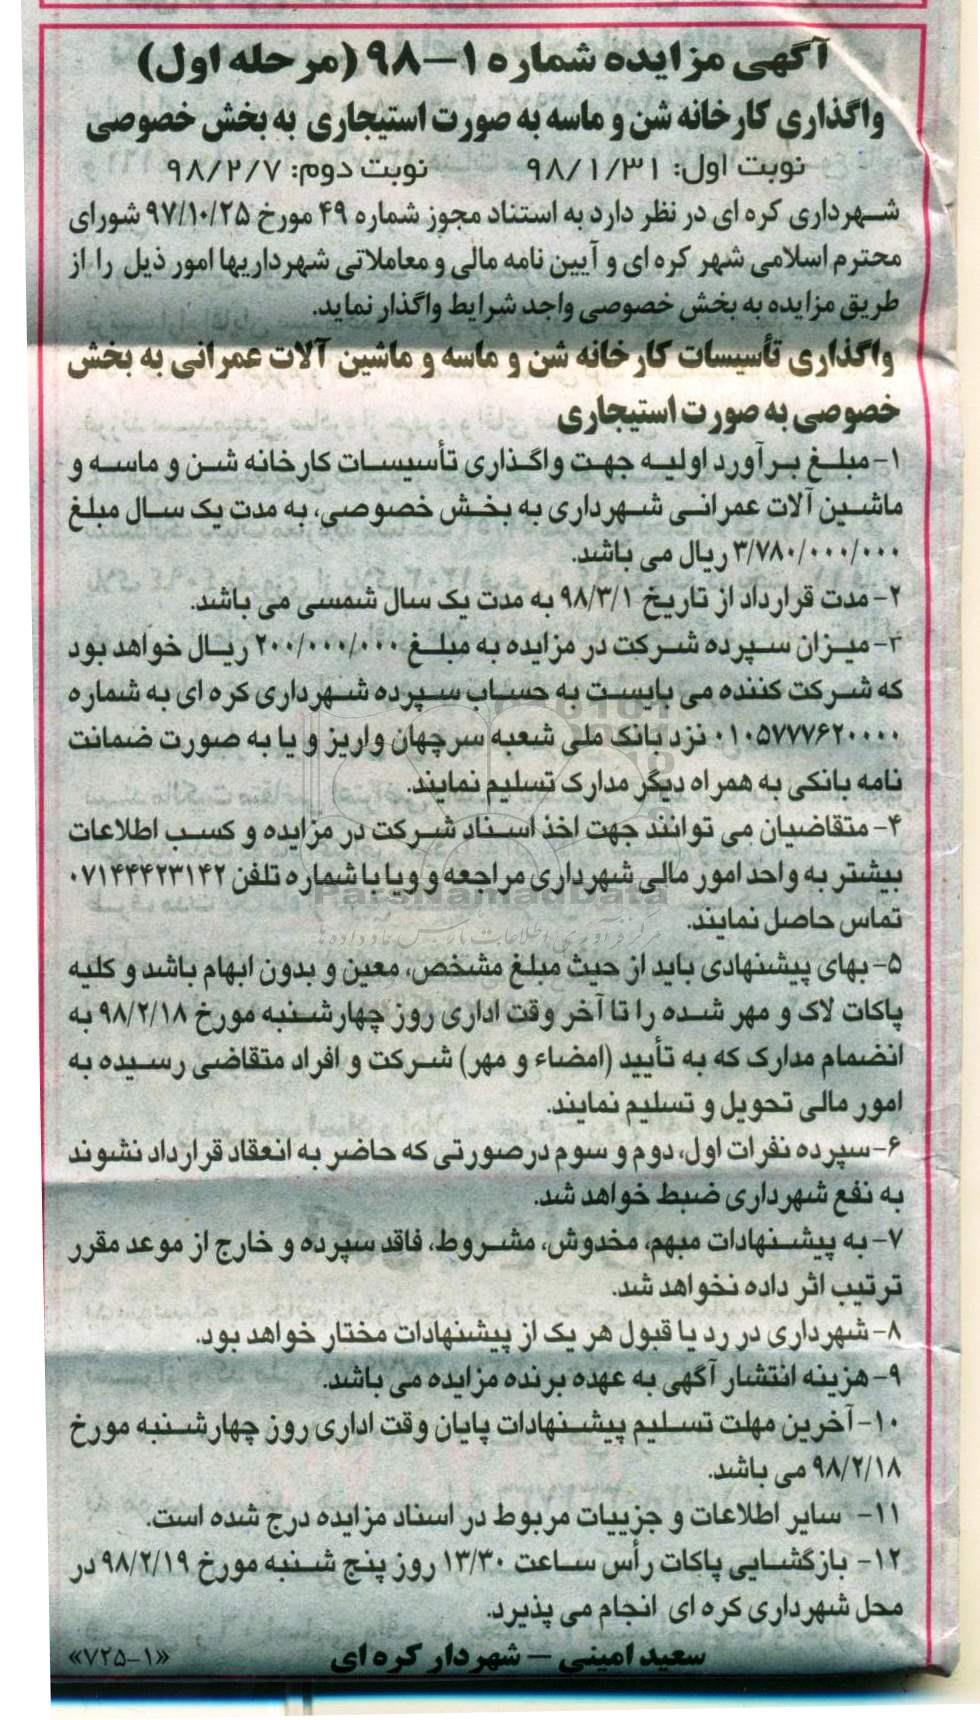 آگهی مزایده شماره ۱-۹۸ (مرحله اول)
واگذاری کارخانه شن و ماسه به صورت استیجاری به بخش خصوصی
نوبت اول: ۹۸/۱/۳۱ نوبت دوم: ۹۸/۲/۷
شهرداری کره ای در نظر دارد به استناد مجوز شماره ۴۹ مورخ ۹۷/۱۰/۲۵ شورای
محترم اسلامی شهر کره ای و آیین نامه مالی و معاملاتی شهرداریها امور ذیل را از
طریق مزایده به بخش خصوصی واجد شرایط واگذار نماید.
واگذاری تأسیسات کارخانه شن و ماسه و ماشین آلات عمرانی به بخش
خصوصی به صورت استیجاری
۱- مبلغ برآورد اولیه جهت واگذاری تأسیسات کارخانه شن و ماسه و
ماشین آلات عمرانی شهرداری به بخش خصوصی، به مدت یک سال مبلغ
۳/۷۸۰/۰۰۰/۰۰۰ ریال می باشد.
۲- مدت قرارداد از تاریخ ۹۸/۳/۱ به مدت یک سال شمسی می باشد.
۳- میزان سپرده شرکت در مزایده به مبلغ ۲۰۰/۰۰۰/۰۰۰ ریال خواهد بود
که شرکت کننده می بایست به حساب سپرده شهرداری کره ای به شماره
۰۱۰۵۷۷۷۶۲۰۰۰۰ نزد بانک ملی شعبه سرچهان واریز و یا به صورت ضمانت
نامه بانکی به همراه دیگر مدارک تسلیم نمایند.
۴- متقاضیان می توانند جهت اخذ اسناد شرکت در مزایده و کسب اطلاعات
بیشتر به واحد امور مالی شهرداری مراجعه و ویا با شماره تلفن ۰۷۱۴۴۴۲۳۱۴۲
ParsNamadData
تماس حاصل نمایند.
۵- بهای پیشنهادی باید از حیث مبلغ مشخص، معین و بدون ابهام باشد و کلیه
پاکات لاک و مهر شده را تا آخر وقت اداری روز چهارشنبه مورخ ۹۸/۲/۱۸ به
انضمام مدارک که به تأیید (امضاء و مهر) شرکت و افراد متقاضی رسیده به
امور مالی تحویل و تسلیم نمایند.
۶- سپرده نفرات اول، دوم و سوم درصورتی که حاضر به انعقاد قرارداد نشوند
به نفع شهرداری ضبط خواهد شد.
۷- به پیشنهادات مبهم، مخدوش، مشروط، فاقد سپرده و خارج از موعد مقرر
ترتیب اثر داده نخواهد شد.
۸- شهرداری در رد یا قبول هر یک از پیشنهادات مختار خواهد بود.
۹- هزینه انتشار آگهی به عهده برنده مزایده می باشد.
۱۰- آخرین مهلت تسلیم پیشنهادات پایان وقت اداری رون چهارشنبه مورخ
۹۸/۲/۱۸ می باشد.
۱۱- سایر اطلاعات و جزییات مربوط در اسناد مزایده درج شده است.
۱۲- بازگشایی پاکات رأس ساعت ۱۳/۳۰ روز پنج شنبه مورخ ۹۸/۲/۱۹ در
محل شهرداری کره ای انجام می پذیرد.
سعید امینی - شهردار کره ای «۷۲۵-۱»